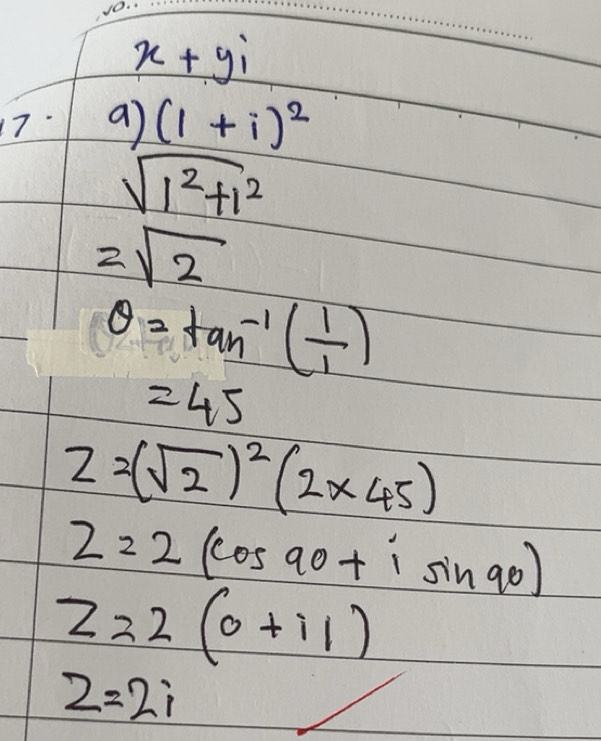 No..
x + yi
17. a) (1 + i)²
√1²+1²
= √2
θ = tan⁻¹ (1/1)
= 45
Z = (√2)² (2 × 45)
Z = 2 (cos 90 + i sin 90)
Z = 2 (0 + i1)
Z = 2i